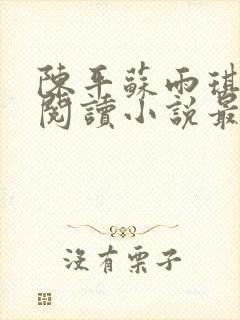 陳平蘇雨琪
閱讀小說最
沒有栗子